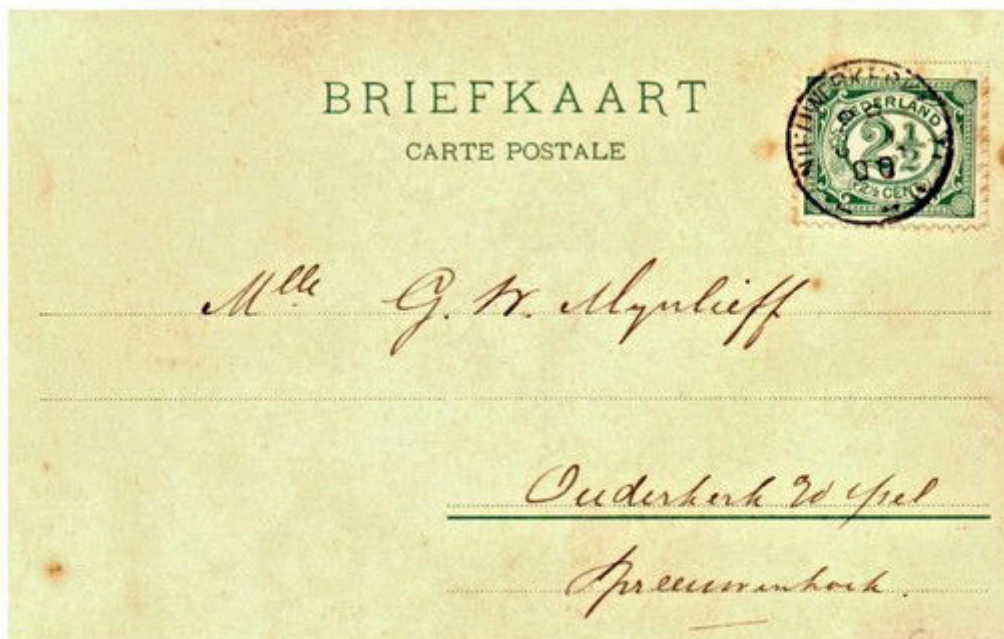 BRIEFKAART
CARTE POSTALE
NEDERLAND
2½
2½ CENT
Mlle G. W. Mynlieff
Ouderkerk a/d Ysel
Spreeuwenhoek.